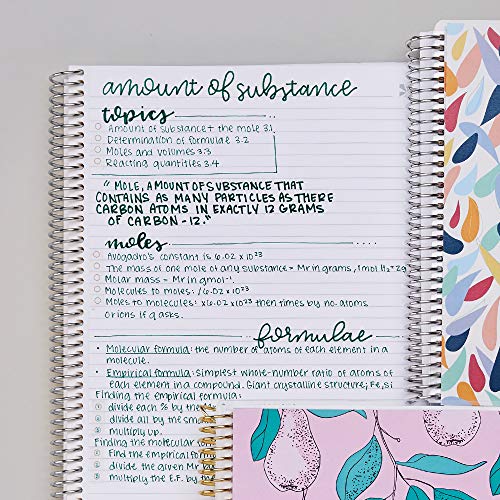 amount of substance
topics
Amount of substance + the mole 3.1
Determination of formulae 3.2
Moles and volumes 3.3
Reacting quantities 3.4
"MOLE, AMOUNT OF SUBSTANCE THAT
CONTAINS AS MANY PARTICLES AS THERE
CARBON ATOMS IN EXACTLY 12 GRAMS
OF CARBON-12."
moles
Avogadro's constant is 6.02 x 10²³
The mass of one mole of any substance = Mr in grams, 1mol H₂ = 2g
Molar mass = Mr in gmol⁻¹
Molecules to moles: /6.02x10²³
Moles to molecules: x6.02x10²³ then times by no. atoms
or ions if q asks.
formulae
• Molecular formula: the number of atoms of each element in a
molecule.
• Empirical formula: simplest whole-number ratio of atoms of
each element in a compound. Giant crystalline structure; Fe, Si
Finding the empirical formula:
① divide each % by the
② divide all by the sm
③ multiply up.
Finding the molecular fo
① Find the empirical form
② divide the given Mr by
③ multiply the E.F. by th